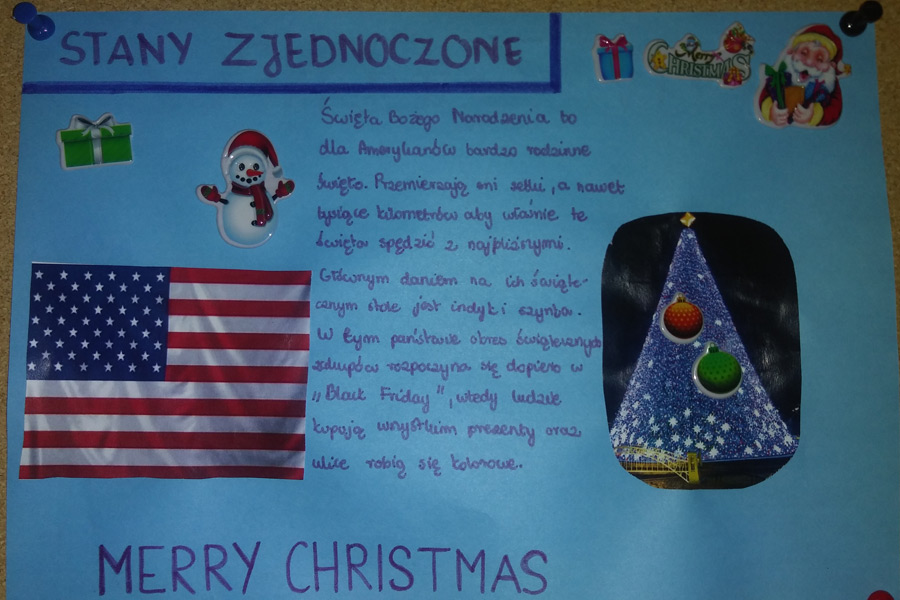 STANY ZJEDNOCZONE
Merry
CHRISTMAS
Święta Bożego Narodzenia to
dla Amerykanów bardzo rodzinne
święto. Przemierzają oni setki, a nawet
tysiące kilometrów aby właśnie te
święta spędzić z najbliższymi.
Głównym daniem na ich święte-
cznym stole jest indyk i szynka.
W tym państwie okres świątecznych
zakupów rozpoczyna się dopiero w
,,Black Friday", wtedy ludzie
kupują wszystkim prezenty oraz
ulice robią się kolorowe.
MERRY CHRISTMAS